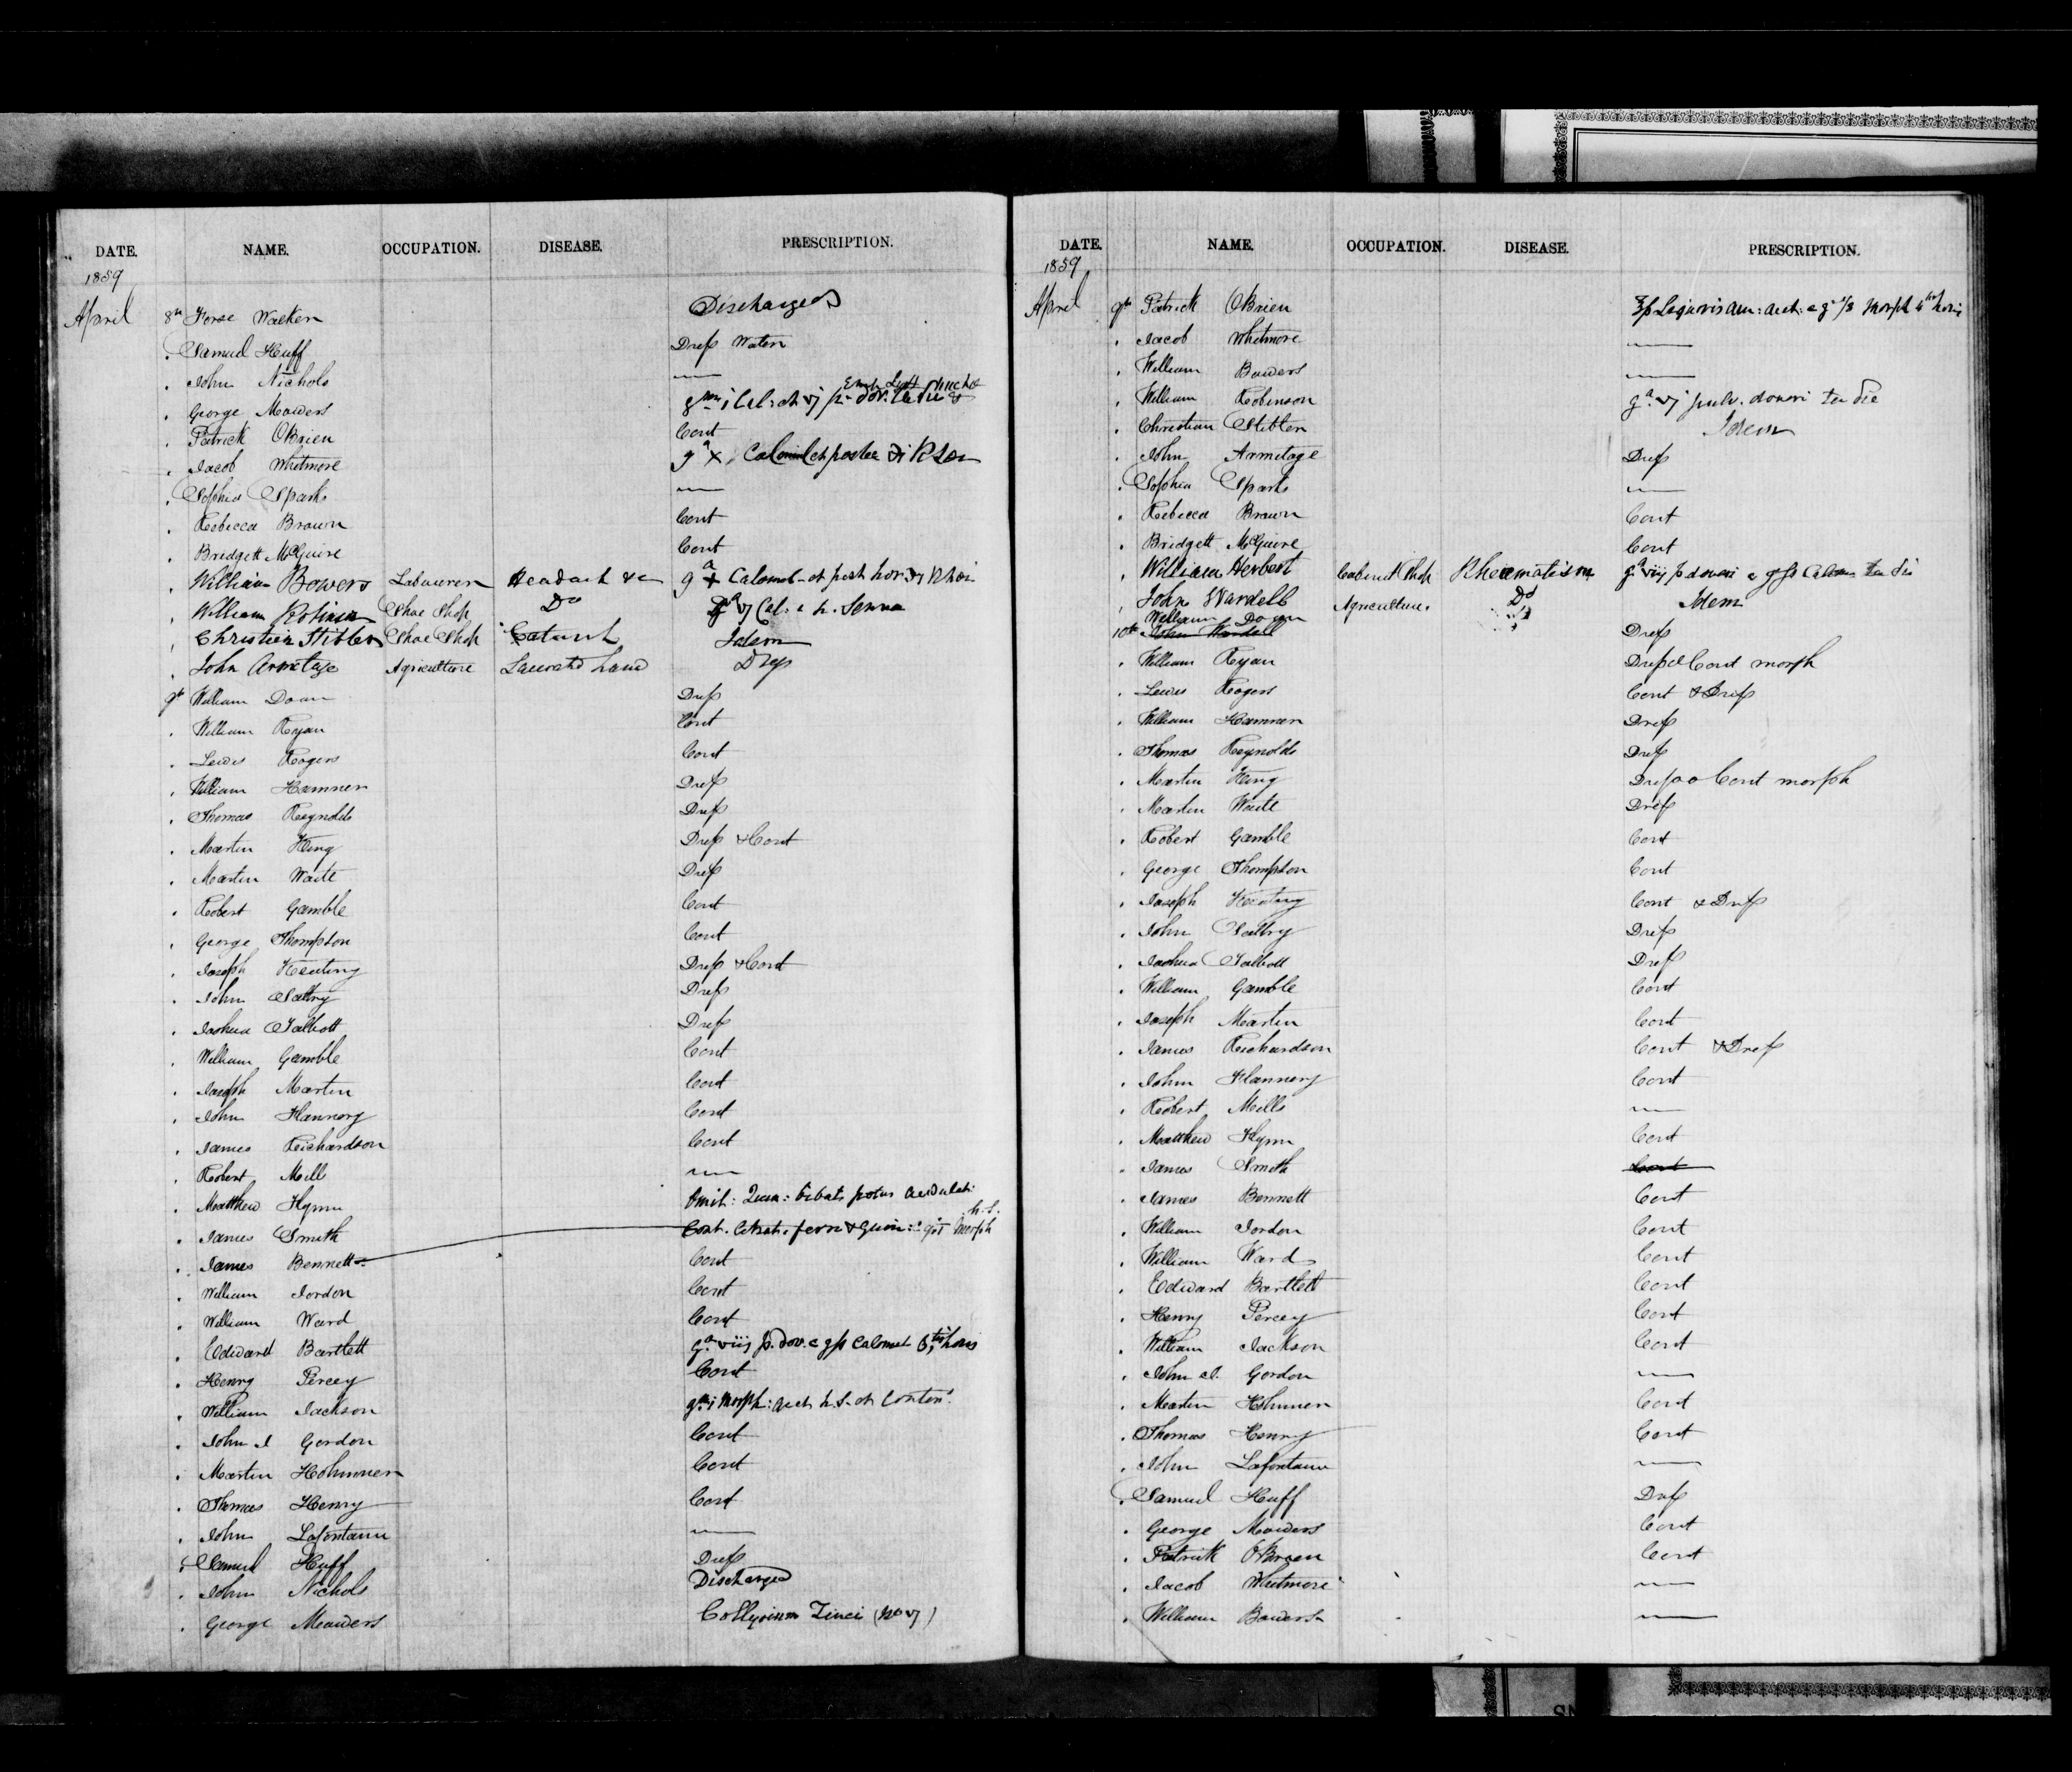 DATE. NAME. OCCUPATION. DISEASE. PRESCRIPTION.
1859
April 8th Horse Walker Discharged
" Samuel Huff Dress Water
" John Nichols —
" George Meaders
" Patrick OBrien Cont
" Jacob Whitmore
" Sophia Sparks —
" Rebecca Brown Cont
" Bridgett McGuire Cont
" William Bowers Labourer Headach &c
" William Robinson Shoe Shop Do
" Christian Stibler Shoe Shop Catarrh Idem
" John Armitage Agriculture Lacerated hand Dress
9th William Doan Dress
" William Ryan Cont
" Lewis Rogers Cont
" William Hamner Dress
" Thomas Reynolds Dress
" Martin King Dress & Cont
" Martin Waite Dress
" Robert Gamble Cont
" George Thompson Cont
" Joseph Keating Dress & Cont
" John Saltry Dress
" Joshua Talbott Dress
" William Gamble Cont
" Joseph Martin Cont
" John Flannery Cont
" James Richardson Cont
" Robert Mills —
" Matthew Flynn Omit: Quin: bibat potus acidulat:
" James Smith h.s.
" James Bennett Cont
" William Jordon Cont
" William Ward Cont
" Edward Bartlett gr viij p. dov. c grs Calomel 6tis horis
" Henry Percey Cont
" William Jackson
" John J Gordon Cont
" Martin Hohmner Cont
" Thomas Henry Cont
" John Lafontann —
" Samuel Huff Dress
" John Nichols Discharged
" George Meaders Collyrium Zinci (No vj)
DATE. NAME. OCCUPATION. DISEASE. PRESCRIPTION.
1859
April 9th Patrick OBrien
" Jacob Whitmore —
" William Bowers —
" William Robinson gr vj pulv. doveri ter die
" Christian Stibler Idem
" John Armitage Dress
" Sophia Sparks —
" Rebecca Brown Cont
" Bridgett McGuire Cont
" William Herbert Cabinet Shop Rheumatism gr viij p doveri c grs Calom ter die
" John Wardell Agriculture. Do Idem
William Doan
10th John Wardell Dress
" William Ryan Dress & Cont morph
" Lewis Rogers Cont & Dress
" William Hamner Dress
" Thomas Reynolds Dress
" Martin King Dress & Cont morph
" Martin Waite Dress
" Robert Gamble Cont
" George Thompson Cont
" Joseph Keating Cont & Dress
" John Saltry Dress
" Joshua Talbott Dress
" William Gamble Cont
" Joseph Martin Cont
" James Richardson Cont & Dress
" John Flannery Cont
" Robert Mills —
" Matthew Flynn Cont
" James Smith Cont
" James Bennett Cont
" William Jordon Cont
" William Ward Cont
" Edward Bartlett Cont
" Henry Percey Cont
" William Jackson Cont
" John J. Gordon —
" Martin Hohmner Cont
" Thomas Henry Cont
" John Lafontann —
" Samuel Huff Dress
" George Meaders Cont
" Patrick OBrien Cont
" Jacob Whitmore —
" William Bowers —
SN